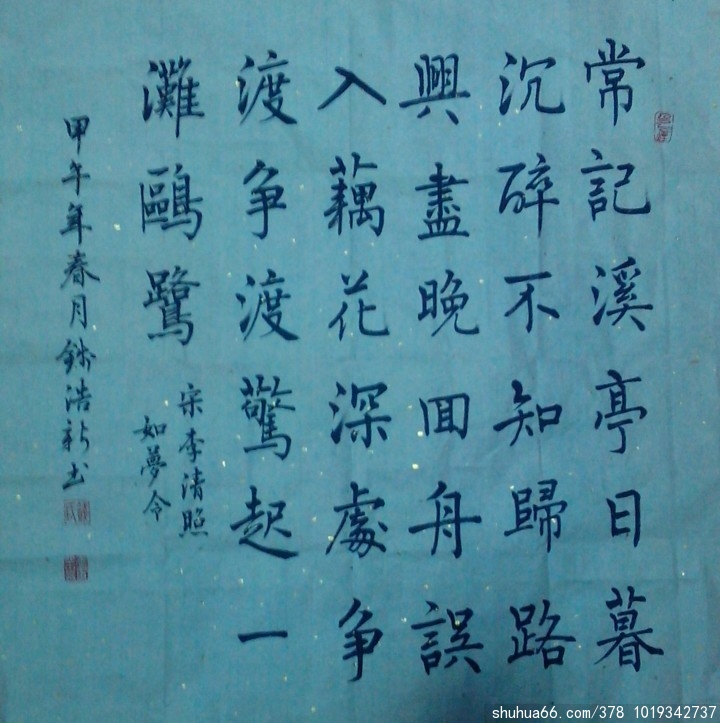 常記溪亭日暮
沉醉不知歸路
興盡晚回舟誤
入藕花深處争
渡争渡驚起一
灘鷗鷺
宋李清照
如夢令
甲午年春月錢浩新书
shuhua66.com/378 1019342737